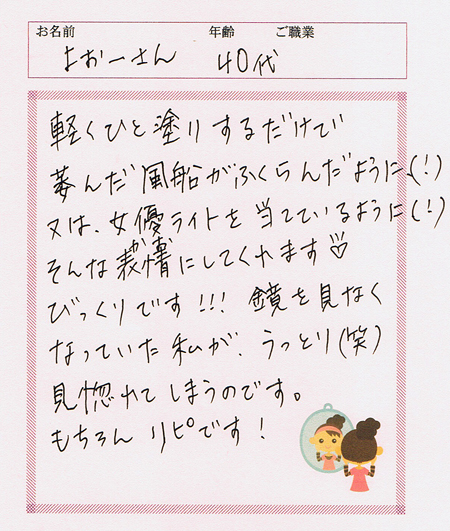 お名前 年齢 ご職業
よおーさん 40代
軽くひと塗りするだけで
萎んだ風船がふくらんだように(!)
又は、女優ライトを当てているように(!)
そんな表情にしてくれます♡
びっくりです!!! 鏡を見なく
なっていた私が、うっとり(笑)
見惚れてしまうのです。
もちろんリピです!